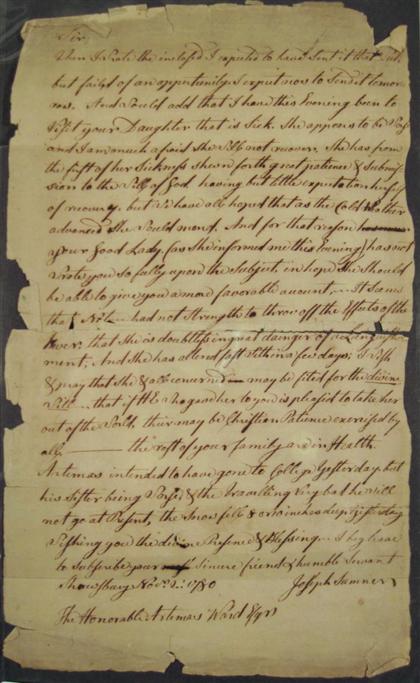 Sir,
When I wrote the inclosed I expected to have sent it that
but fail'd of an oppertunity. I expect now to send it tomor
row. And would add that I have this Evening been to
visit your Daughter that is Sick. She appears to be
and I am much afraid she will not recover. She has from
the first of her Sickness shewn forth great patience & Submis
sion to the Will of God having but little expectation herself
of recovery. but we have all hoped that as the Cold Wether
advanced she would mend. And for that reason
your Good Lady (as she informed me this Evening) has not
wrote you so fully upon the Subject, in hope she should
be able to give you a more favorable account
that had not strength to throw off the Effects of the
fever; that she is doubtless in great danger of
ment, And she has altered fast within a few days; I wish
& pray that she & all concerned may be fited for the divine
Will that if He who gave her to you is pleased to take her
out of the World, their may be Christian Patience exercised by
all the rest of your family are in Health.
Artemas intended to have gone to College yesterday but
his Sister being worse & the Travelling very bad he will
not go at Present, the Snow fell inches deep yesterday
Wishing you the divine Presence & Blessing I beg leave
to Subscribe your sincere friend & humble Servant
Shrewsbury Nov. 2. 1780 Joseph Sumner
The Honorable Artemas Ward Esqr